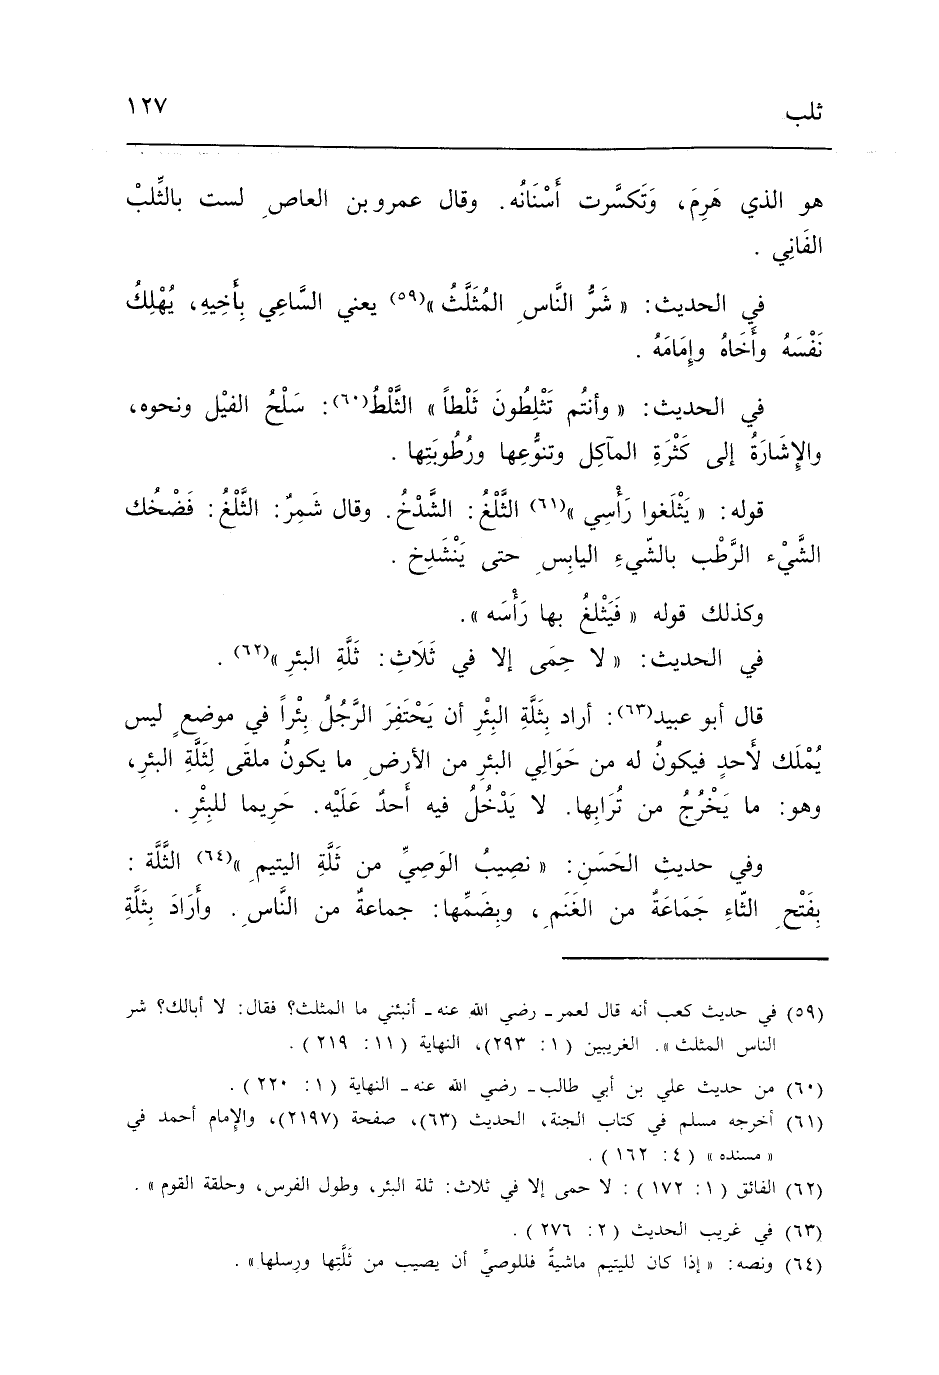 ثلب
١٢٧
هو الذي هَرِمَ، وَتَكسَّرت أَسْنَانُه. وقال عمرو بن العاصِ لست بالثِّلبْ
الفَانِي .
في الحديث: « شَرُّ النَّاسِ المُثَلَّثُ »(٥٩) يعني السَّاعِي بِأَخِيهِ، يُهْلِكُ
نَفْسَهُ وأَخَاهُ وإمَامَهُ .
في الحديث: « وأنتُم تَثْلِطُونَ ثَلْطاً » الثَّلْطُ(٦٠): سَلْحُ الفيْل ونحوه،
والإِشَارَةُ إلى كَثْرَةِ المآكِل وتنوُّعِها ورُطُوبَتِها .
قوله: « يَثْلَغوا رَأْسِي »(٦١) الثَّلْغُ: الشَّدْخُ. وقال شَمِرٌ: الثَّلْغُ: فَضْخُك
الشَّيْء الرَّطْب بالشّيءِ اليابِسِ حتى يَنْشَدِخ .
وكذلك قوله « فَيَثْلغُ بها رَأْسَه ».
في الحديث: « لا حِمَى إلا في ثَلَاثِ: ثَلَّةِ البئرِ »(٦٢) .
قال أبو عبيد(٦٣): أراد بِثَلَّةِ البِئْرِ أن يَحْتَفِرَ الرَّجُلُ بِئْراً في موضعٍ ليس
يُمْلَك لأَحدٍ فيكونُ له من حَوَالِي البئرِ من الأرضِ ما يكونُ ملقَى لِثَلَّةِ البئرِ،
وهو: ما يَخْرُجُ من تُرَابِها. لا يَدْخُلُ فيه أَحدٌ عَلَيْه. حَرِيما للبِئْرِ .
وفي حديثِ الحَسَنِ: « نصِيبُ الوَصِيِّ من ثَلَّةِ اليتيمِ »(٦٤) الثَّلَّة :
بِفَتْحِ الثّاءِ جَمَاعَةٌ من الغَنَمِ، وبِضَمِّها: جماعةٌ من النَّاسِ. وأَرَادَ بِثَلَّةِ
(٥٩) في حديث كعب أنه قال لعمر ـ رضي الله عنه ـ أنبئني ما المثلث؟ فقال: لا أبالك؟ شر
الناس المثلث ». الغريبين (١: ٢٩٣)، النهاية (١١: ٢١٩) .
(٦٠) من حديث علي بن أبي طالب ـ رضي الله عنه ـ النهاية (١: ٢٢٠) .
(٦١) أخرجه مسلم في كتاب الجنة، الحديث (٦٣)، صفحة (٢١٩٧)، والإمام أحمد في
« مسنده » (٤: ١٦٢) .
(٦٢) الفائق (١: ١٧٢) : لا حمى إلا في ثلاث: ثلة البئر، وطول الفرس، وحلقة القوم » .
(٦٣) في غريب الحديث (٢: ٢٧٦) .
(٦٤) ونصه: « إذا كان لليتيم ماشيةٌ فللوصيِّ أن يصيب من ثَلَّتِها ورِسلها » .